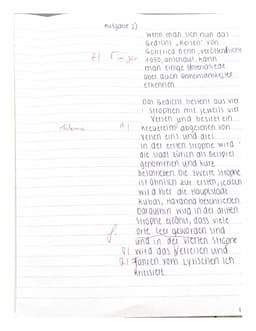 Aufgabe 2)
Wenn man sich nun das
Gedicht „Reisen" von
Gottfried Benn, veröffentlicht
1950, anschaut, kann
man einige Unterschiede
aber auch Gemeinsamkeiten
erkennen.
Das Gedicht besteht aus vier
Strophen mit jeweils vier
Versen und besitzt ein
Kreuzreim abgesehen von
Versen eins und drei.
In der ersten Strophe wird
die Stadt Zürich als Beispiel
genommen und kurz
beschrieben. Die zweite Strophe
ist ähnlich zur ersten, jedoch
wird hier die Hauptstadt
Kubas, Havanna beschrieben.
Daraufhin wird in der dritten
Strophe erzählt, dass viele
Orte leer geworden sind
und in der vierten Strophe
wird das Verreisen und
Fahren vom lyrischen Ich
kritisiert.